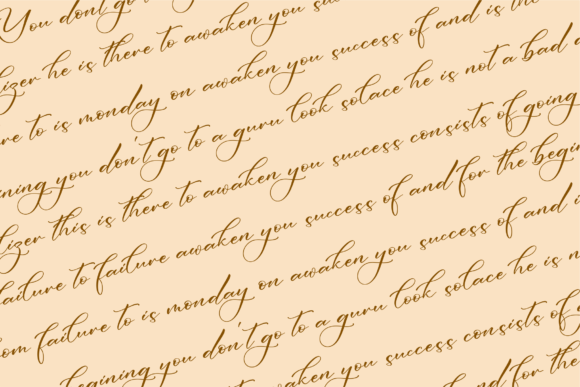 You don't go
lizer he is there to awaken you suc
re to is monday on awaken you success of and is the
ining you don't go to a guru look solace he is not a bad
lizer this is there to awaken you success consists of going
failure to failure awaken you success of and for the begin
om failure to is monday on awaken you success of and i
begining you don't go to a guru look solace he is n
awaken you success consists of
and for the